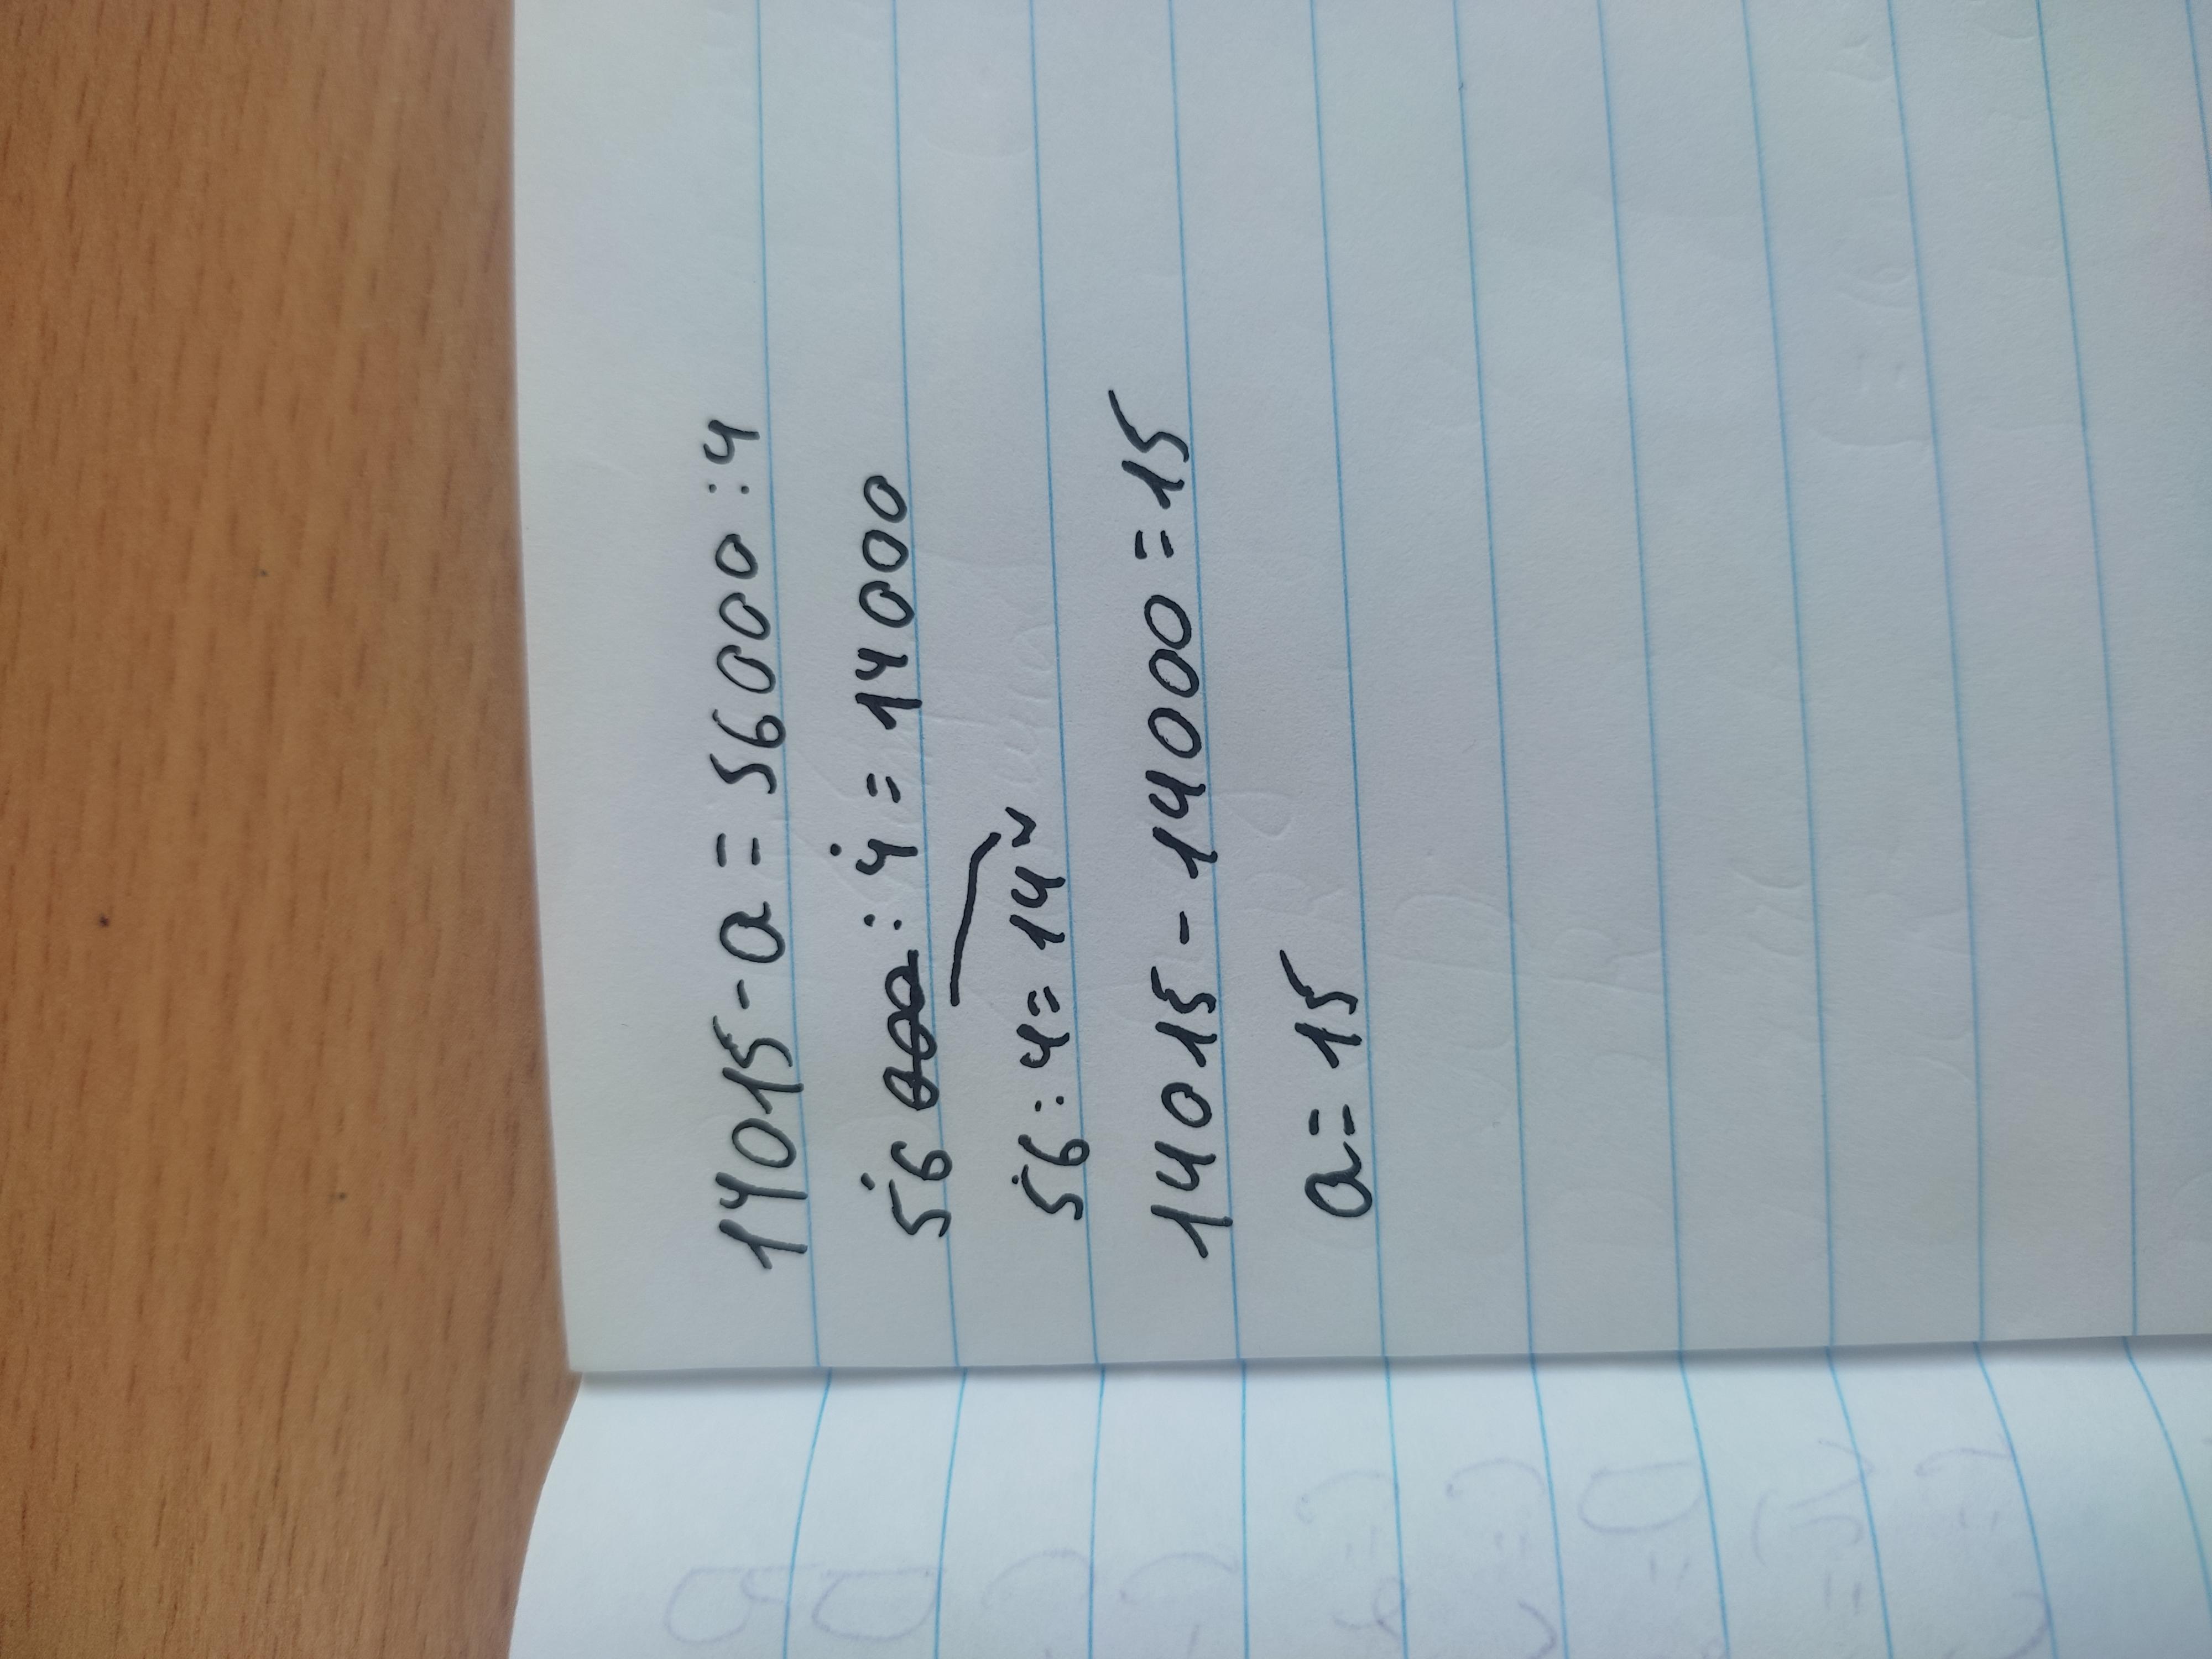 14015 - a = 56000 : 4
56 000 : 4 = 14000
56 : 4 = 14
14015 - 14000 = 15
a = 15